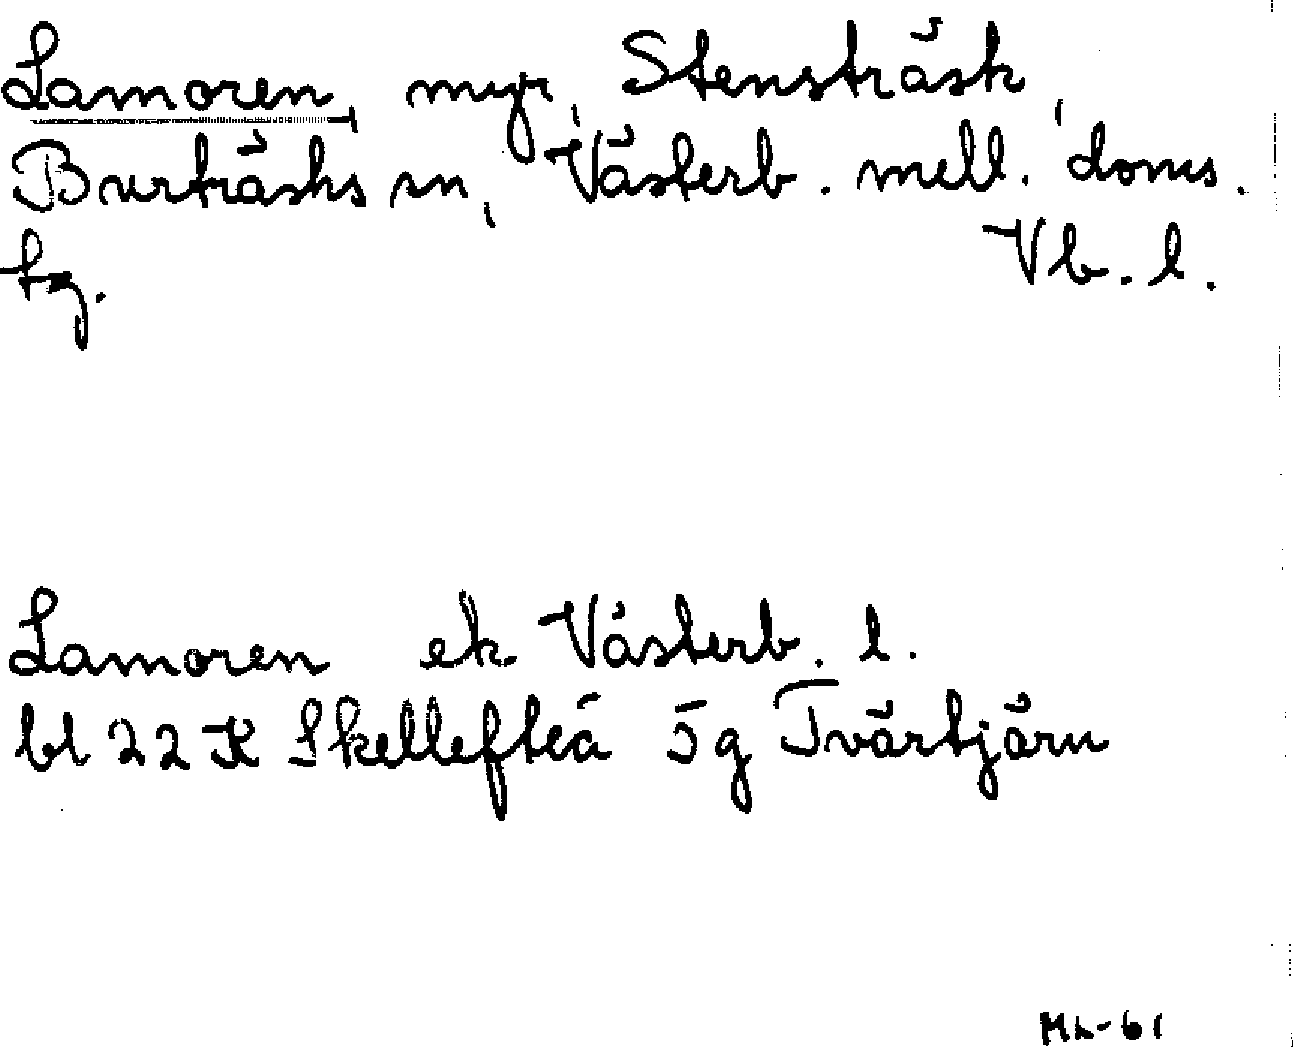 Lamoren, myr, Stensträsk,
Burträsks sn, Västerb. mell. doms.
tg. Vb. l.
Lamoren ek. Västerb. l.
bl 22 K Skellefteå 5g Tvärtjärn